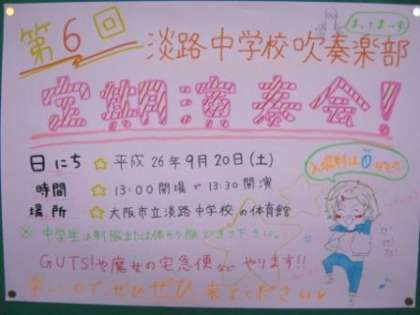 第6回 淡路中学校吹奏楽部
定期演奏会!
日にち ☆ 平成26年9月20日(土)
時間 ☆ 13:00開場 13:30開演
場所 ☆ 大阪市立淡路中学校の体育館
入場料は0
※中学生は制服または体そう服で来て下さい。
GUTS!や魔女の宅急便などやります!!
ぜひぜひ来てください